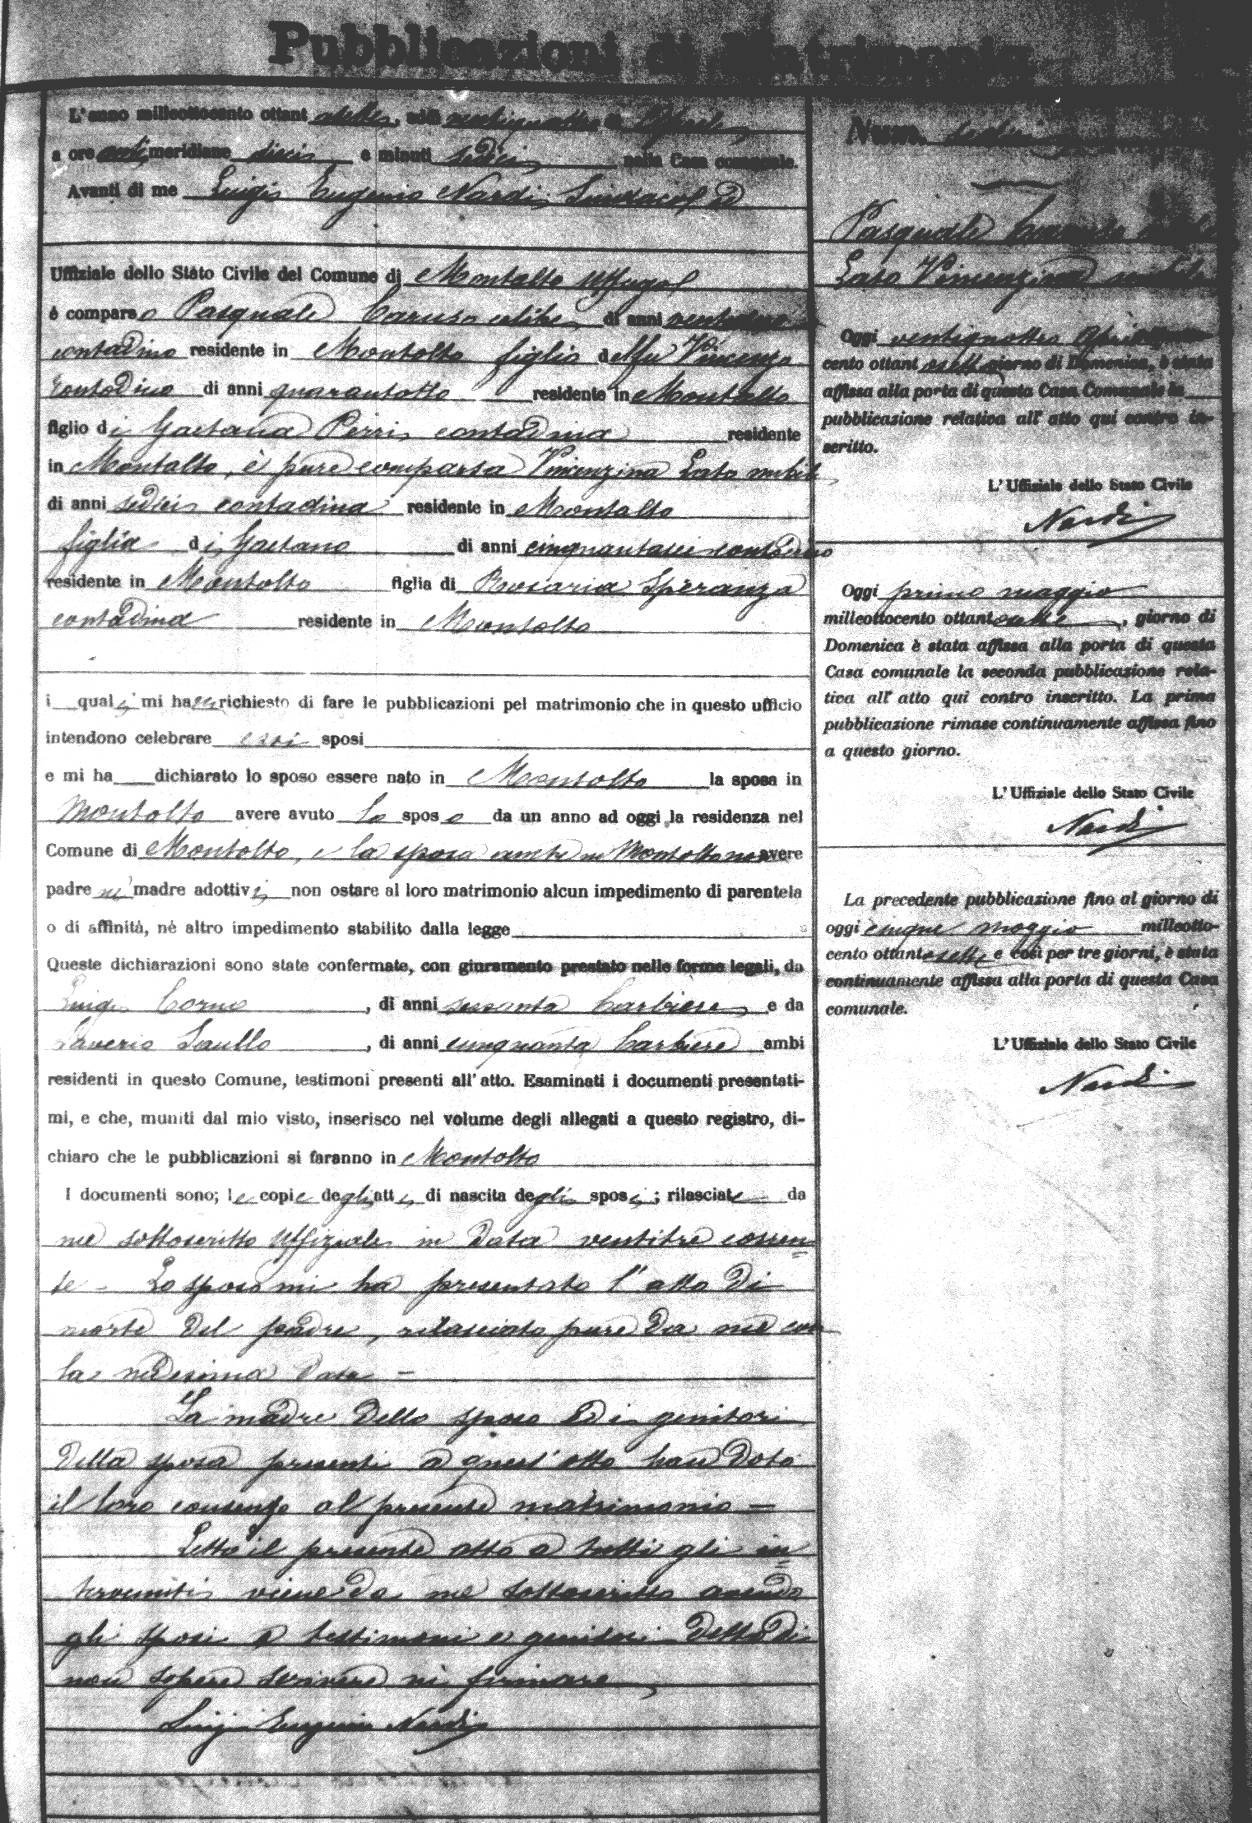 Pubblicazioni di Matrimonio
L'anno milleottocento ottantasette, addì ventiquattro di Aprile,
a ore antimeridiane dieci e minuti sedici nella Casa comunale.
Avanti di me Luigi Eugenio Nardi Sindaco ed
Uffiziale dello Stato Civile del Comune di Montalto Uffugo
è comparso Pasquale Caruso celibe, di anni
contadino residente in Montalto figlio del fu Vincenzo
contadino di anni quarantotto residente in Montalto
figlio di Gaetana Perri contadina residente
in Montalto, è pure comparsa Vincenzina Lato nubile
di anni sedici contadina residente in Montalto
figlia di Gaetano di anni cinquantasei contadino
residente in Montalto figlia di Rosaria Speranza
contadina residente in Montalto
i quali mi hanno richiesto di fare le pubblicazioni pel matrimonio che in questo ufficio
intendono celebrare essi sposi
e mi ha dichiarato lo sposo essere nato in Montalto la sposa in
Montalto avere avuto lo sposo da un anno ad oggi la residenza nel
Comune di Montalto, e la sposa anche in Montalto non avere
padre né madre adottivi non ostare al loro matrimonio alcun impedimento di parentela
o di affinità, né altro impedimento stabilito dalla legge
Queste dichiarazioni sono state confermate, con giuramento prestato nelle forme legali, da
Luigi Corno, di anni sessanta barbiere e da
Saverio Saullo, di anni cinquanta barbiere ambi
residenti in questo Comune, testimoni presenti all'atto. Esaminati i documenti presentati-
mi, e che, muniti dal mio visto, inserisco nel volume degli allegati a questo registro, di-
chiaro che le pubblicazioni si faranno in Montalto
I documenti sono; le copie degli atti di nascita degli sposi; rilasciate da
me sottoscritto Uffiziale in data ventitre corren=
te - Lo sposo mi ha presentato l'atto di
morte del padre, rilasciato pure da me con
la medesima data -
La madre dello sposo ed i genitori
della sposa presenti a quest'atto han dato
il loro consenso al presente matrimonio -
Letto il presente atto a tutti gli in=
tervenuti viene da me sottoscritto avendo
gli sposi e testimoni e genitori detto di
non sapere scrivere nè firmare
Luigi Eugenio Nardi
Num.
Pasquale Caruso
Lato Vincenzina nubile
Oggi ventiquattro Aprile
cento ottantasette giorno di Domenica, è stata
affissa alla porta di questa Casa Comunale la
pubblicazione relativa all'atto qui contro in-
scritto.
L'Uffiziale dello Stato Civile
Nardi
Oggi primo maggio
milleottocento ottantasette, giorno di
Domenica è stata affissa alla porta di questa
Casa comunale la seconda pubblicazione rela-
tiva all'atto qui contro inscritto. La prima
pubblicazione rimase continuamente affissa fino
a questo giorno.
L'Uffiziale dello Stato Civile
Nardi
La precedente pubblicazione fino al giorno di
oggi cinque maggio milleotto-
cento ottantasette e così per tre giorni, è stata
continuamente affissa alla porta di questa Casa
comunale.
L'Uffiziale dello Stato Civile
Nardi